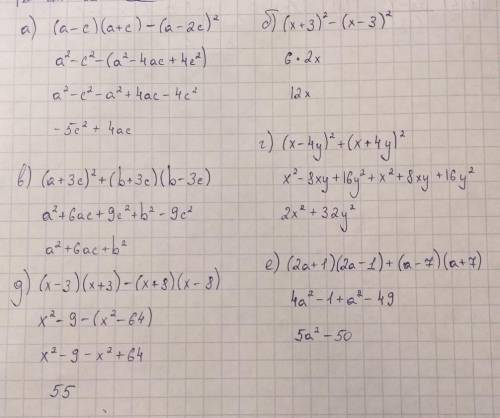 а) (a-c)(a+c)-(a-2c)²
a²-c²-(a²-4ac+4c²)
a²-c²-a²+4ac-4c²
-5c²+4ac
б) (x+3)²-(x-3)²
6·2x
12x
в) (a+3c)²+(b+3c)(b-3c)
a²+6ac+9c²+b²-9c²
a²+6ac+b²
г) (x-4y)²+(x+4y)²
x²-8xy+16y²+x²+8xy+16y²
2x²+32y²
д) (x-3)(x+3)-(x+8)(x-8)
x²-9-(x²-64)
x²-9-x²+64
55
е) (2a+1)(2a-1)+(a-7)(a+7)
4a²-1+a²-49
5a²-50